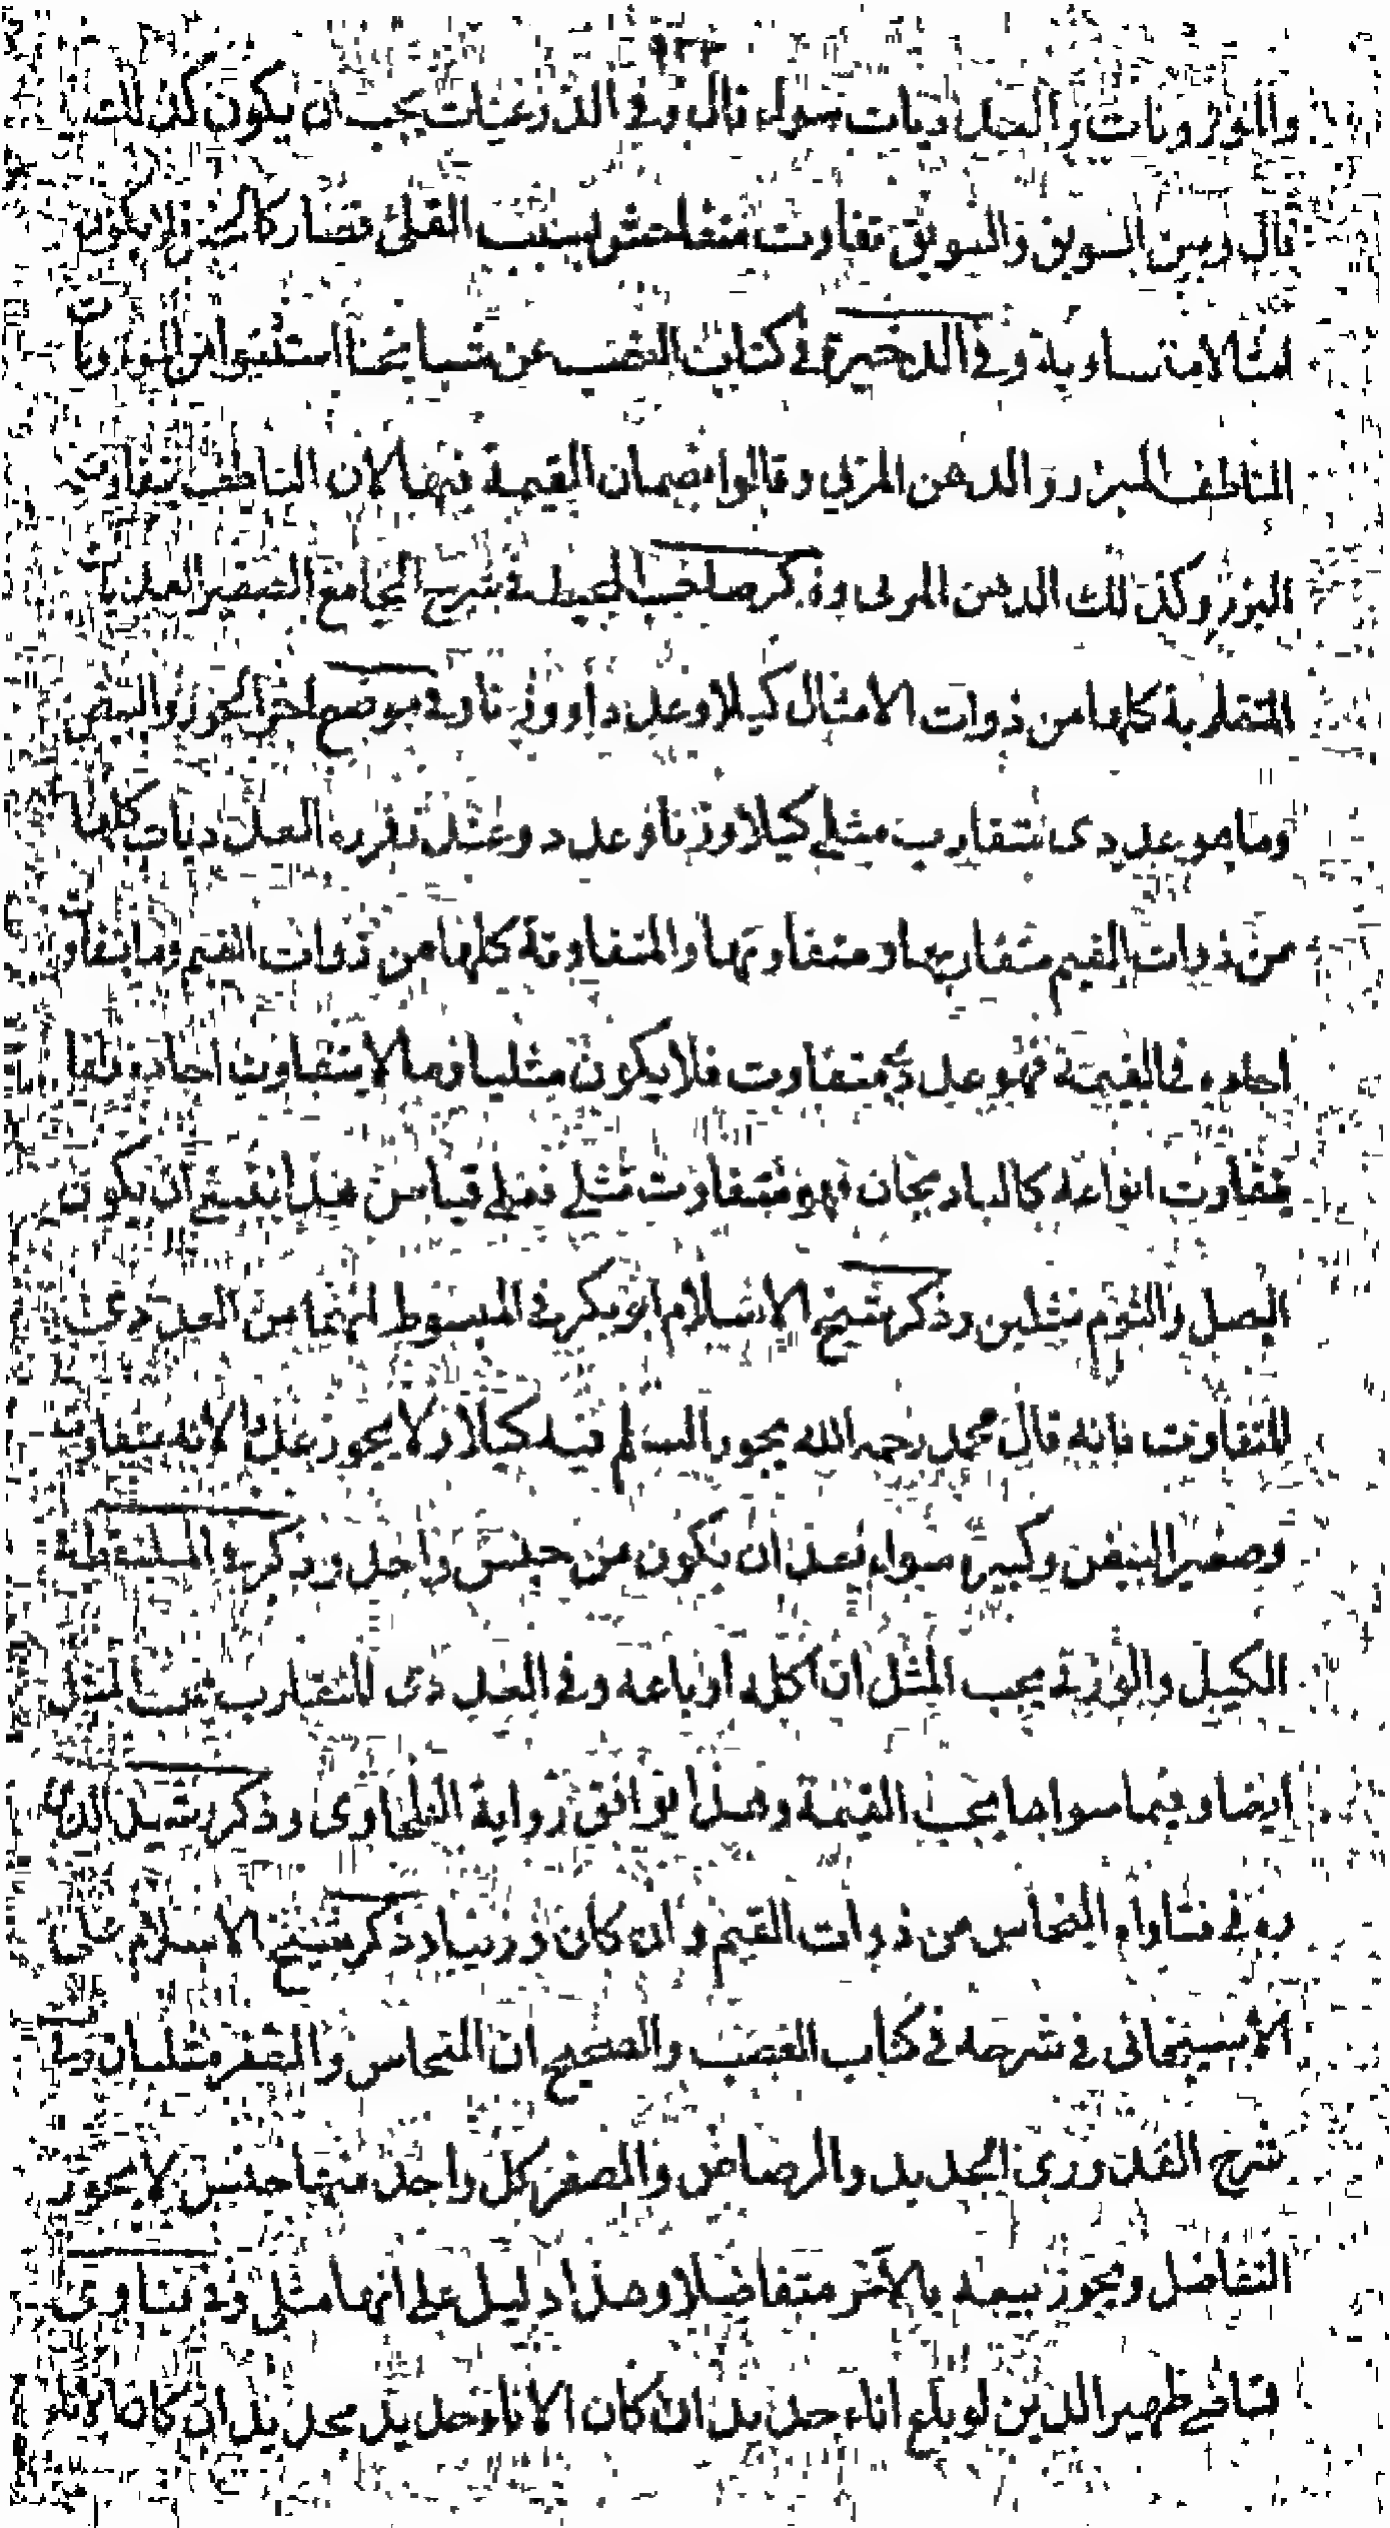 والموزونات والعدديات سواء قال وفى الذرعيات يجب ان يكون كذلك
قال وبين السويق والسويق تفاوت متفاحش بسبب القلى فصار كالخبز فلا يكون
امثالا متساوية وفى الذخيرة فى كتاب الغصب عن مشايخنا استثنوا من الموزونات
الناطف المبزر والدهن المربى وقالوا بضمان القيمة فيهما لان الناطف يتفاوت
البزر وكذلك الدهن المربى وذكر صاحب المحيط فى شرح الجامع الصغير العدديات
المتقاربة كلها من ذوات الامثال كيلا وعددا ووزنا وفى موضع اخر الجوز والبيض
وما هو عددى متقارب مثلى كيلا ووزنا وعدد وعند زفر ره العدديات كلها
من ذوات القيم متقاربها ومتفاوتها والمتفاوتة كلها من ذوات القيم وما يتفاوت
احاده فى القيمة فهو عددى متفاوت فلا يكون مثليا وما لا يتفاوت احاده
يتفاوت انواعه كالباذنجان فهو متفاوت مثلى فعلى قياس هذا ينبغى ان يكون
البصل والثوم مثلين وذكر شيخ الاسلام ابو بكر فى المبسوط انهما من العددى
المتفاوت فانه قال محمد رحمه الله يجوز السلم فيه كيلا ولا يجوز عددا لانه متفاوت
وصغير البيض وكبيره سواء بعد ان يكون من جنس واحد وذكر فى
الكيل والوزنى يجب المثل ان اكله او باعه وفى العددى المتقارب يجب المثل
ايضا وفيما سواها يجب القيمة وهذا يوافق رواية الطحاوى وذكر رشيد الدين
ره فى فتاواه النحاس من ذوات القيم وان كان وزنيا وذكر شيخ الاسلام على
الاسبيجابى فى شرحه فى كتاب الغصب والصحيح ان النحاس والصفر مثليان وفى
شرح القدورى الحديد والرصاص والصفر كل واحد منها جنس لا يجوز
التفاضل ويجوز بيعه بالآخر متفاضلا وهذا دليل على انها مثلى وفى فتاوى
قاضى ظهير الدين لو باع اناء حديد ان كان الاناء حديد بحديد ان كان